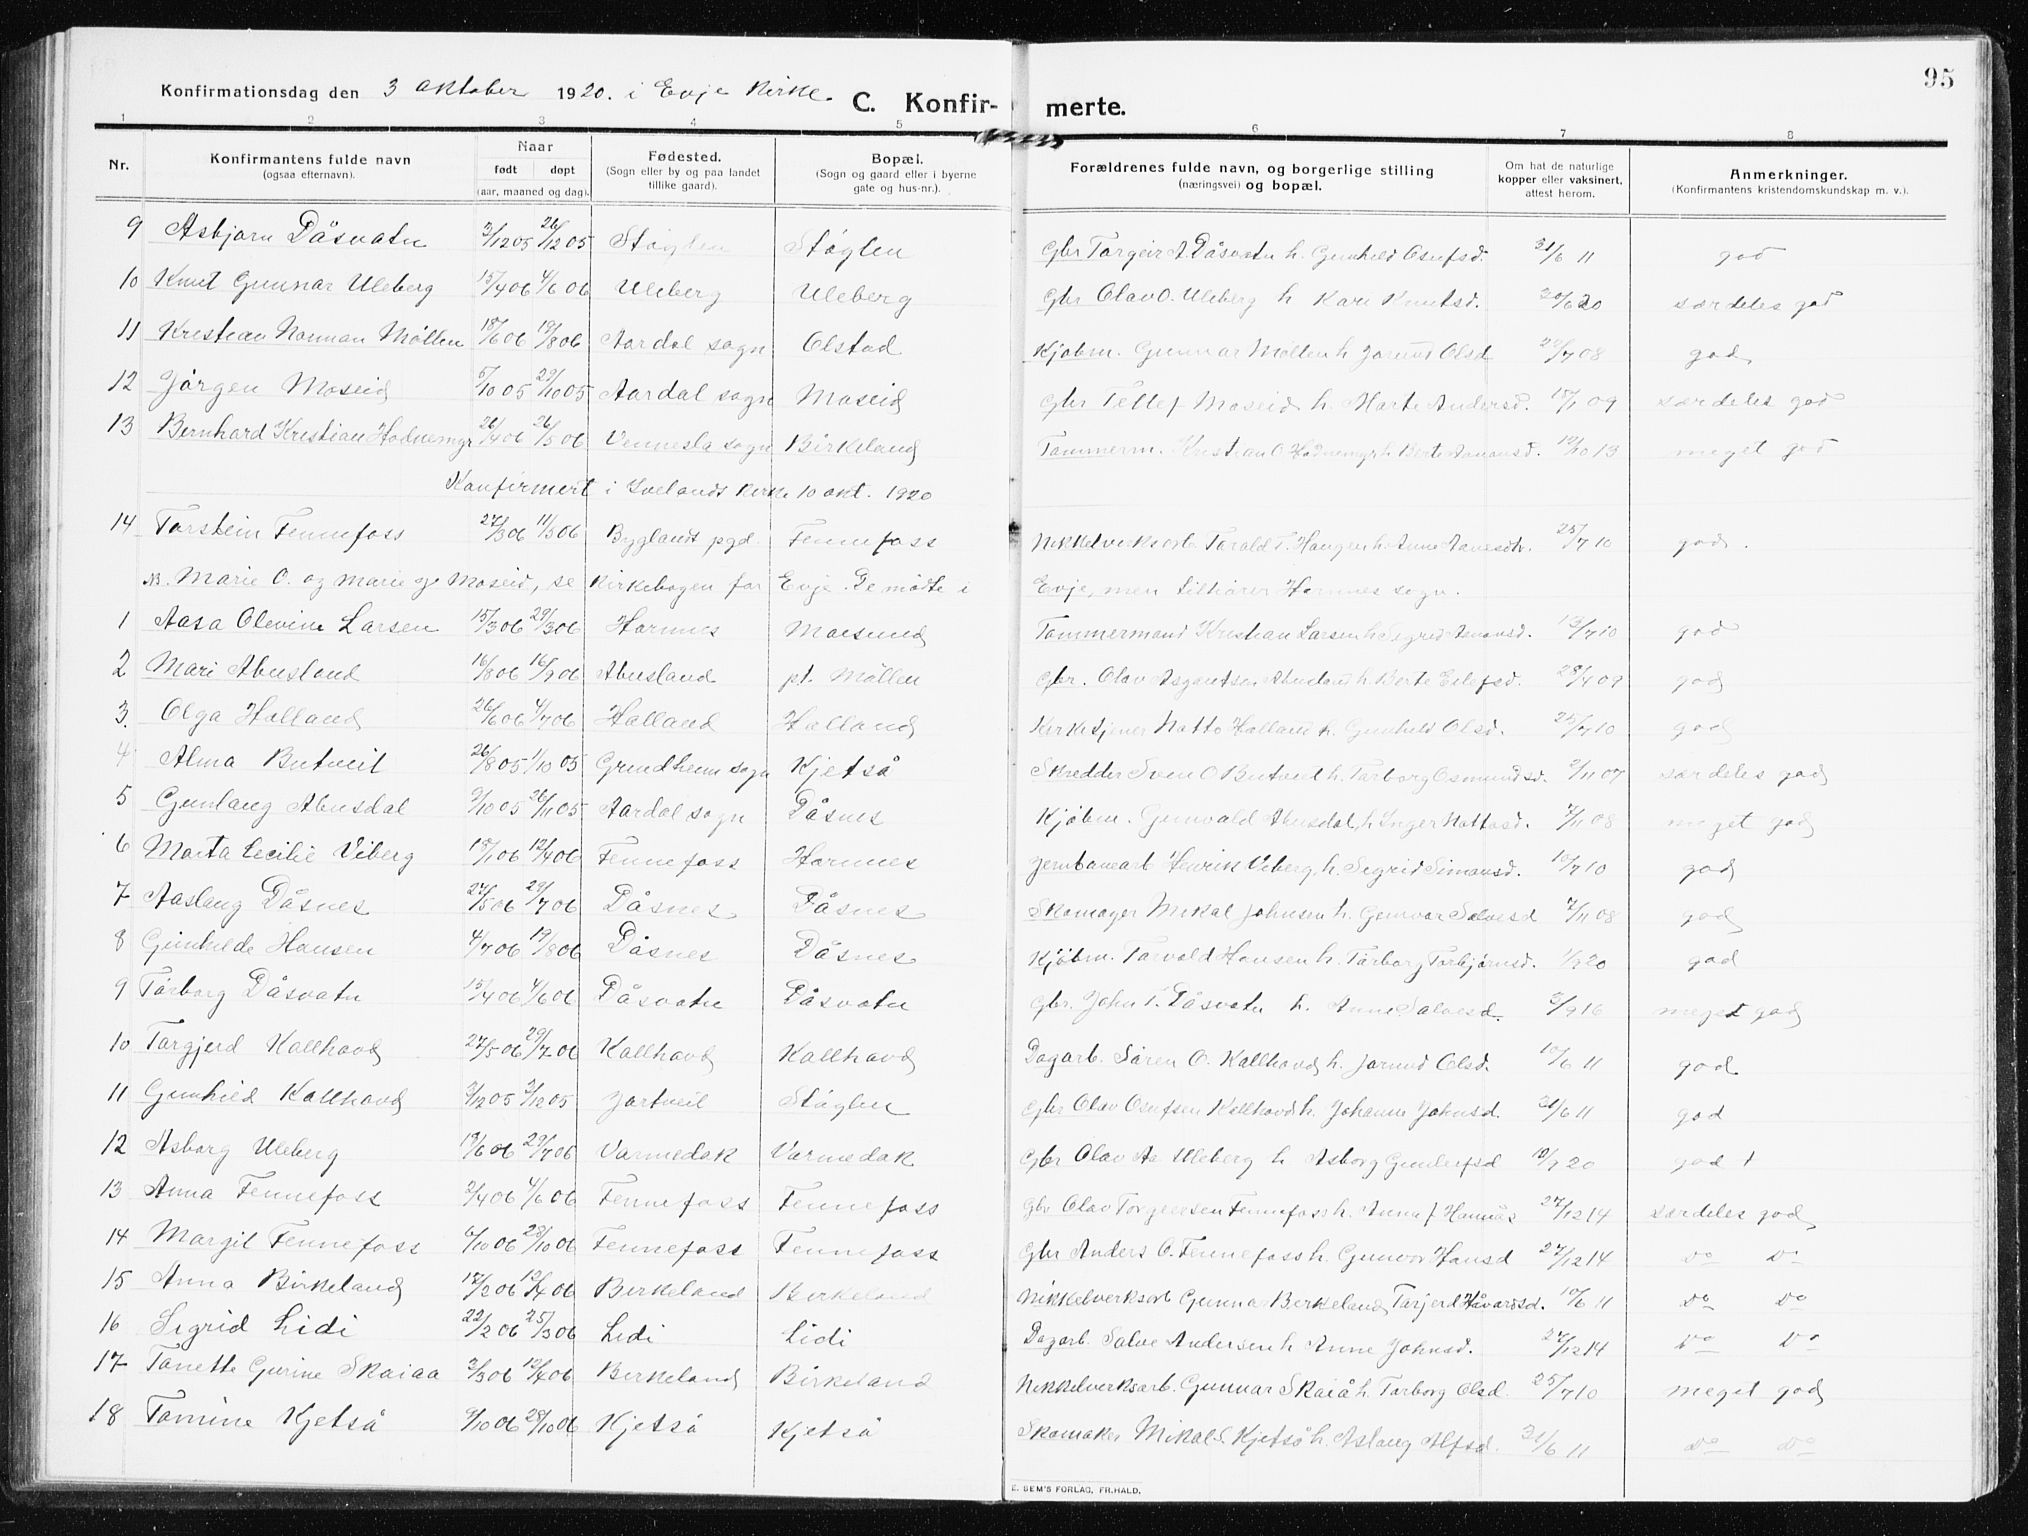 95
Konfirmationsdag den 3 oktober 1920. i Evje Kirke. C. Konfir- merte.
1 2 3 4 5 6 7 8
Nr. Konfirmantens fulde navn (ogsaa efternavn). Naar født døpt (aar, maaned og dag). Fødested. (Sogn eller by og paa landet tillike gaard). Bopæl. (Sogn og gaard eller i byerne gate og hus-nr.). Forældrenes fulde navn, og borgerlige stilling (næringsvei) og bopæl. Om hat de naturlige kopper eller vaksinert, attest herom. Anmerkninger. (Konfirmantens kristendomskundskap m. v.).
9 Asbjørn Dåsvatn 3/12 05 26/12 05 Støglen Støglen Gbr Targeir A. Dåsvatn h. Gunhild Osufsd. 21/6 11 god
10 Knut Gunnar Uleberg 15/4 06 4/6 06 Uleberg Uleberg Gbr Olav O. Uleberg h Kari Knutsd. 20/6 20 særdeles god
11 Kristian Norman Møllen 18/6 06 19/8 06 Aardal sogn Olstad Kjøbm. Gunnar Møllen h Jorund Olsd 20/7 08 god
12 Jørgen Moseid 5/10 05 29/10 05 Aardal sogn Moseid Gbr Tellef Moseid h. Marte Andersd. 15/1 09 særdeles god
13 Bernhard Kristian Hodnemyr 26/4 06 26/5 06 Vennesla sogn Birkeland Tømmerm. Kristian O Hodnemyr h Berte Aanonsd. 19/10 13 meget god
Konfirmert i Ivelands Kirke 10 okt. 1920
14 Torstein Fennefoss 27/3 06 11/5 06 Byglands pgd. Fennefoss Nikkelverksarb Tarald T. Haugen h. Anne Aanesdtr. 25/7 10 god.
NB. Marie O. og Marie G. Moseid, se Kirkebogen for Evje. De møtte i Evje, men tilhører Hornnes sogn.
1 Aasa Olevine Larsen 15/3 06 29/3 06 Hornnes Moisund Tømmermand Kristian Larsen h Sigrid Aanonsd. 13/7 10 god
2 Mari Abusland 16/8 06 16/9 06 Abusland pt. Møllen Gbr. Olav Asgautsen Abusland h Berte Eilefsd. 28/4 09 god
3. Olga Halland 26/6 06 4/7 06 Halland Halland Kirketjener Natto Halland h. Gunhild Olsd. 25/7 10 god
4 Alma Butveit 26/8 05 1/10 05 Grendheim sogn Kjetså Skredder Sven O Butveit h. Tarborg Osmundsd. 2/11 07 særdeles god
5 Gunlaug Abusdal 9/10 05 26/11 05 Aardal sogn Dåsnes Kjøbm. Gunvald Abusdal, h Inger Nattosd. 7/11 08 meget god
6 Marta Cecilie Viberg 18/1 06 12/4 06 Fennefoss Hornnes Jernbanearb Henrik Viberg, h. Sigrid Simonsd. 10/7 10 god
7 Aaslaug Dåsnes 27/5 06 29/7 06 Dåsnes Dåsnes Skomager Mikal Johnsen h. Gunvor Salvesd 7/11 08 god
8 Gunhilde Hansen 4/7 06 19/8 06 Dåsnes Dåsnes Kjøbm. Tarvald Hansen h. Tarborg Torbjørnsd. 1/9 20 god
9 Tarborg Dåsvatn 15/4 06 4/6 06 Dåsvatn Dåsvatn Gbr. John T. Dåsvatn h. Anne Salvesd. 3/9 16 meget god
10 Targjerd Kallhovd 27/5 06 29/7 06 Kallhovd Kallhovd Dagarb. Søren O. Kallhovd h. Jorund Olsd. 10/6 11 god
11 Gunhild Kallhovd 3/12 05 3/12 05 Jortveit Støglen Gbr Olav Osufsen Kallhovd h. Johanne Johnsd. 21/6 11 god
12 Asborg Uleberg 19/6 06 29/7 06 Varmedak Varmedak Gbr Olav Aa Uleberg h Asborg Gunderfsd 10/9 20 god
13 Anna Fennefoss 2/4 06 4/6 06 Fennefoss Fennefoss Gbr Olav Torgeirsen Fennefoss h. Anna J Hornnes 27/12 14 særdeles god
14 Margit Fennefoss 6/10 06 28/10 06 Fennefoss Fennefoss Gbr Anders O. Fennefoss h. Gunvor Hansd 27/12 14 do do
15 Anna Birkeland 17/2 06 12/4 06 Birkeland Birkeland Nikkelverksarb Gunnar Birkeland, Tarjerd Håvardsd. 10/6 11 do do
16 Sigrid Lidi 22/2 06 25/3 06 Lidi Lidi Dagarb. Salve Andersen h Anne Johnsd. 27/12 14 do do
17 Tonette Gurine Skaiaa 2/3 06 12/4 06 Birkeland Birkeland Nikkelverksarb. Gunnar Skaiå h. Tarborg Olsd. 25/7 10 meget god
18 Tomine Kjetså 9/10 06 28/10 06 Kjetså Kjetså Skomaker Mikal S. Kjetså h. Aslaug Alfsd. 21/6 11 do do
E. SEM'S FORLAG, FR.HALD.